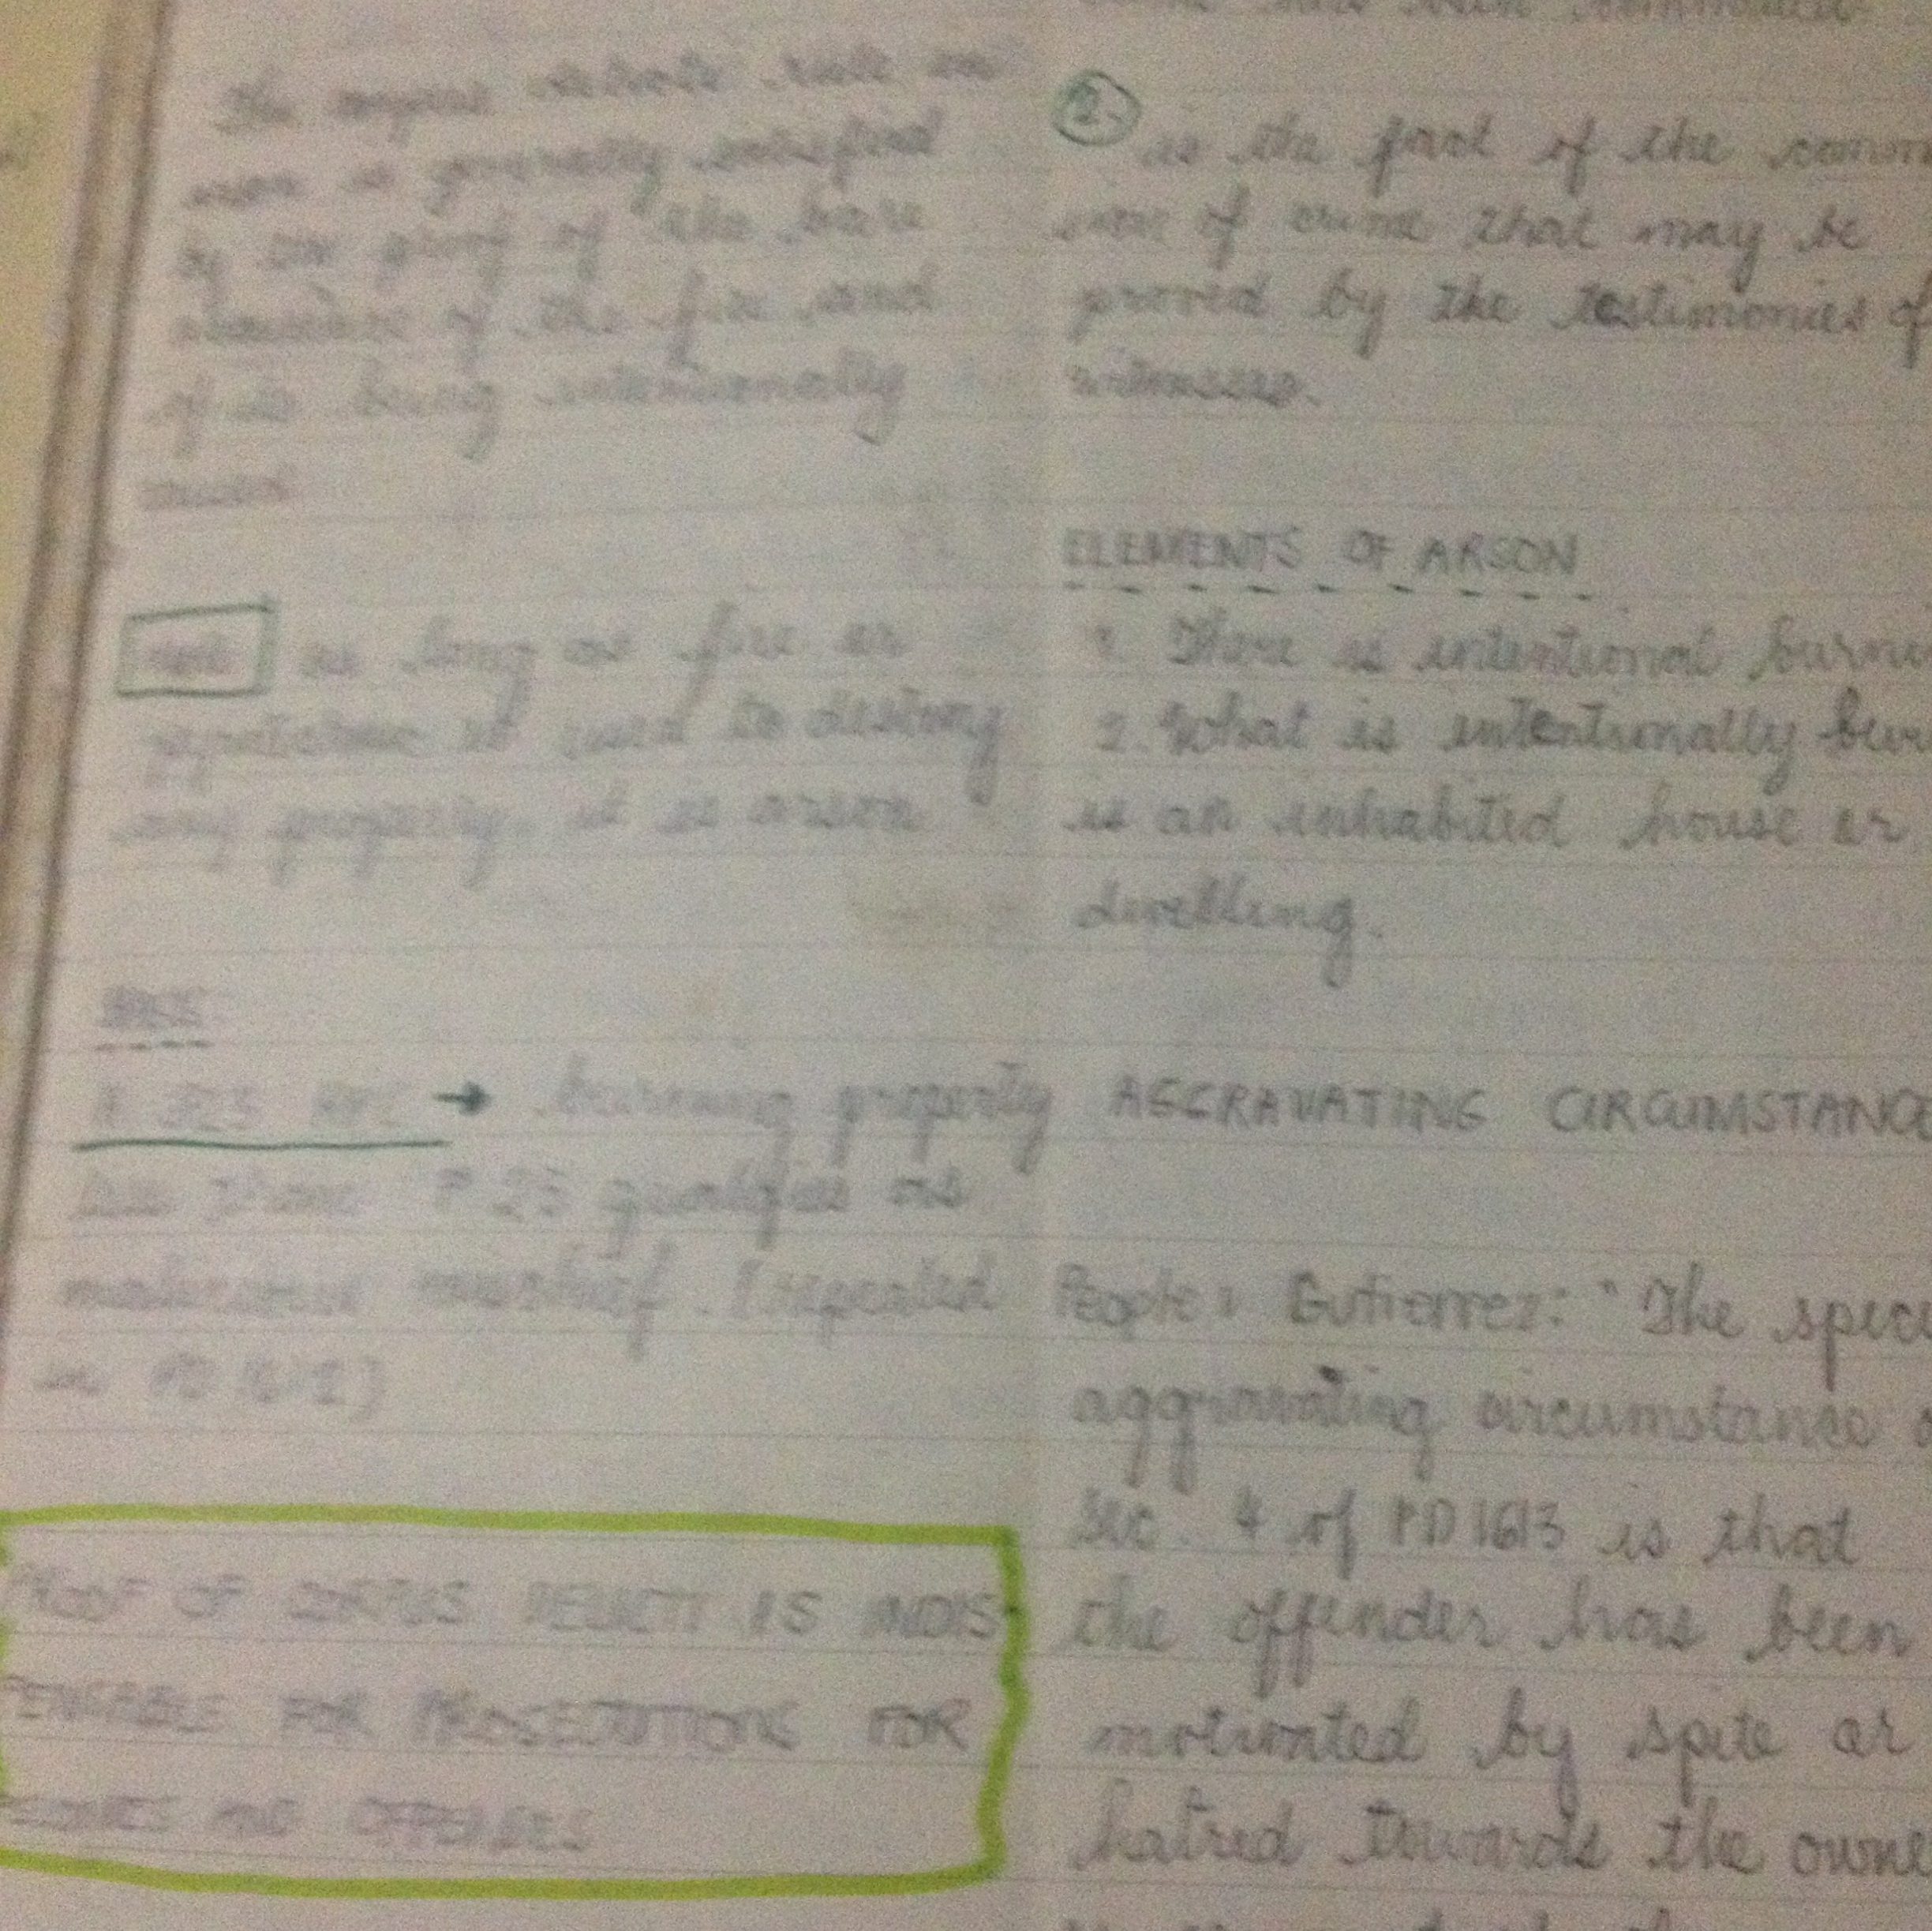 The corpus delicti rule in
arson is generally satisfied
by the proof of the bare
occurrence of the fire and
of its being intentionally
caused
note as long as fire or
is used to destroy
any property, it is arson
325 RPC → burning property
25 qualifies as
malicious mischief. (repealed
in PD
PROOF OF CORPUS DELICTI IS INDIS-
PENSABLE FOR PROSECUTIONS FOR
AND OFFENSES
been
2. is the fact of the comm
sion of crime that may be
proved by the testimonies of
witnesses.
ELEMENTS OF ARSON
1. There is intentional burni
2. What is intentionally bur
is an inhabited house or
dwelling.
AGGRAVATING CIRCUMSTANC
People v Gutierrez: "The spec
aggravating circumstance o
Sec. 4 of PD 1613 is that
the offender has been
motivated by spite or
hatred towards the owne